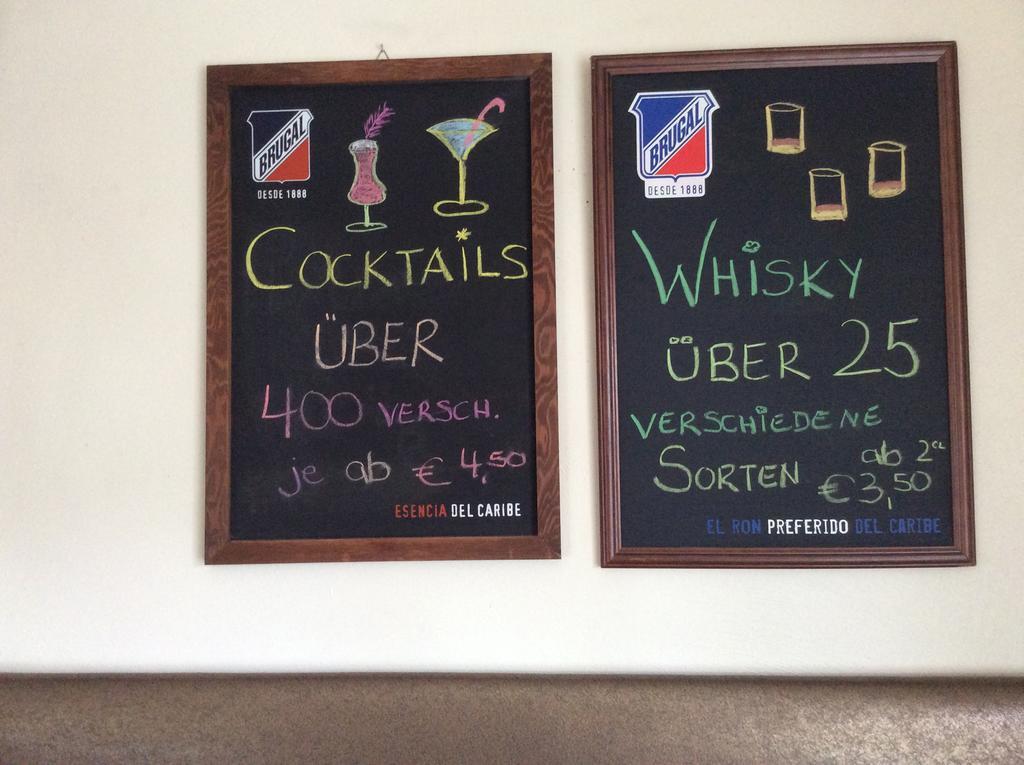 BRUGAL
DESDE 1888
COCKTAILS
ÜBER
400 VERSCH.
je ab € 4,50
ESENCIA DEL CARIBE
BRUGAL
DESDE 1888
WHISKY
ÜBER 25
VERSCHIEDENE
SORTEN ab 2cl
€3,50
EL RON PREFERIDO DEL CARIBE